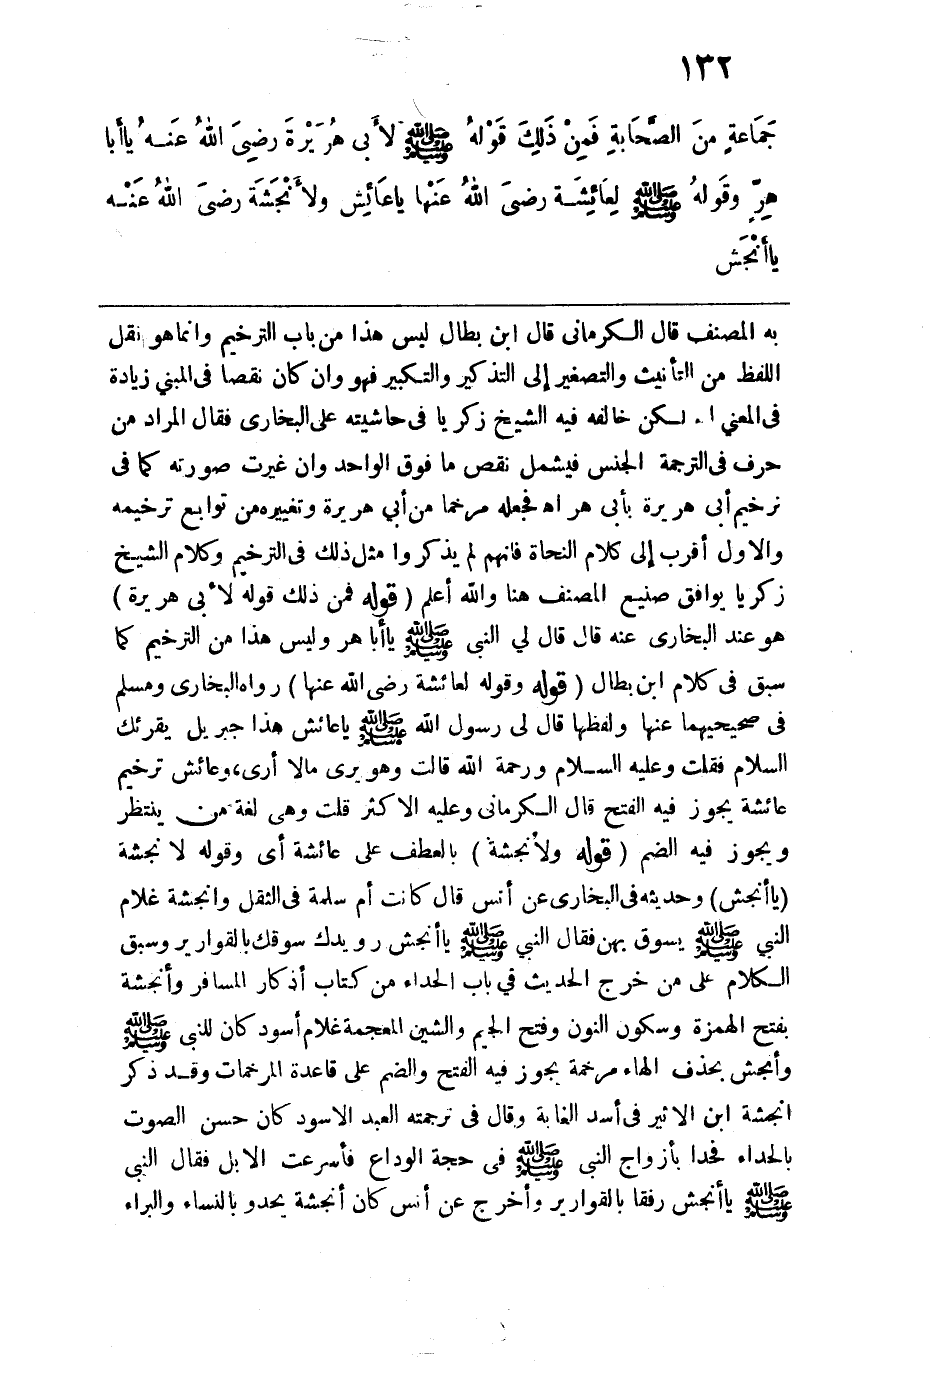 ١٣٢
جَمَاعَةٍ مِنَ الصَّحَابَةِ فَمِنْ ذَلِكَ قَوْلهُ ﷺ لأَبى هُرَيْرَةَ رضِىَ اللهُ عَنـهُ يَاأَبا
هِرٍّ وقَولهُ ﷺ لِعَائِشَـة رضىَ اللهُ عَنْها ياعَائِش ولأَنْجَشَةَ رضىَ اللهُ عَنْـه
ياأَنْجَش
به المصنف قال الـكرمانى قال ابن بطال ليس هذا من باب الترخيم وانما هو نقل
اللفظ من التأنيث والتصغير إلى التذكير والتـكبير فهو وان كان نقصا فى المبني زيادة
فى المعني اه لـكن خالفه فيه الشيخ زكريا فى حاشيته على البخارى فقال المراد من
حرف فى الترجمة الجنس فيشمل نقص ما فوق الواحد وان غيرت صورته كما فى
ترخيم أبى هريرة بأبى هر اه فجعله مرخما من أبي هريرة وتغييره من توابع ترخيمه
والاول أقرب إلى كلام النحاة فانهم لم يذكروا مثل ذلك فى الترخيم وكلام الشيخ
زكريا يوافق صنيع المصنف هنا والله أعلم ( قوله فمن ذلك قوله لأبى هريرة )
هو عند البخارى عنه قال قال لي النبى ﷺ ياأبا هر وليس هذا من الترخيم كما
سبق فى كلام ابن بطال ( قوله وقوله لعائشة رضى الله عنها ) رواه البخارى ومسلم
فى صحيحيهما عنها ولفظها قال لى رسول الله ﷺ ياعائش هذا جبريل يقرئك
السلام فقلت وعليه السـلام ورحمة الله قالت وهو يرى مالا أرى، وعائش ترخيم
عائشة يجوز فيه الفتح قال الـكرمانى وعليه الاكثر قلت وهى لغة من ينتظر
ويجوز فيه الضم ( قوله ولأنجشة ) بالعطف على عائشة أى وقوله لانجشة
(ياأنجش) وحديثه فى البخارى عن أنس قال كانت أم سلمة فى الثقل وانجشة غلام
النبي ﷺ يسوق بهن فقال النبي ﷺ ياأنجش رويدك سوقك بالقوارير وسبق
الـكلام على من خرج الحديث في باب الحداء من كتاب أذكار المسافر وأنجشة
بفتح الهمزة وسكون النون وفتح الجيم والشين المعجمة غلام أسود كان للنبى ﷺ
وأنجش بحذف الهاء مرخمة يجوز فيه الفتح والضم على قاعدة المرخمات وقـد ذكر
انجشة ابن الاثير فى أسد الغابة وقال فى ترجمته العبد الاسود كان حسن الصوت
بالحداء فحدا بأزواج النبي ﷺ فى حجة الوداع فأسرعت الابل فقال النبى
ﷺ ياأنجش رفقا بالقوارير وأخرج عن أنس كان أنجشة يحدو بالنساء والبراء